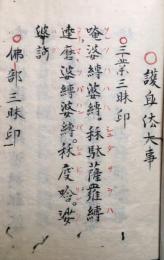 ○護身法大事
○三業三昧印
唵娑縛婆縛秫駄薩羅縛
達磨娑縛婆縛秫度唅。娑
婆訶
○佛部三昧印